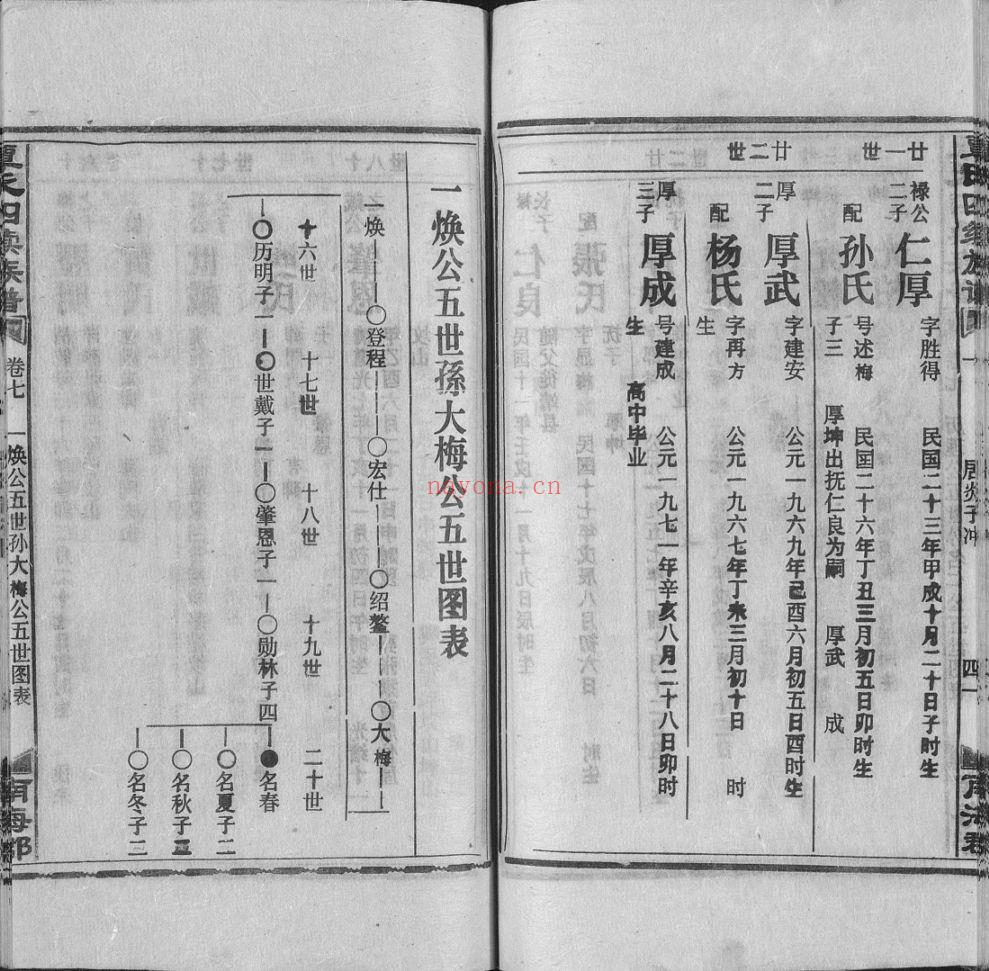 廿一世
禄公
二子
仁厚
字胜得 民国二十三年甲戌十月二十日子时生
配
孙氏
号述梅 民国二十六年丁丑三月初五日卯时生
子三 厚坤出抚仁良为嗣 厚武 成
廿二世
厚
二子
厚武
字建安 公元一九六九年己酉六月初五日酉时生
配
杨氏
字再方 公元一九六七年丁未三月初十日 时
生
厚
三子
厚成
号建成 公元一九七一年辛亥八月二十八日卯时
生 高中毕业
一焕公五世孫大梅公五世图表
一焕 〇登程 〇宏仕 〇绍鳌 〇大梅
十六世 十七世 十八世 十九世 二十世
〇历明子一 〇世戴子一 〇肇恩子一 〇勋林子四 ●名春
〇名夏子二
〇名秋子三
〇名冬子二
卷七 一焕公五世孙大梅公五世图表
nayona.cn